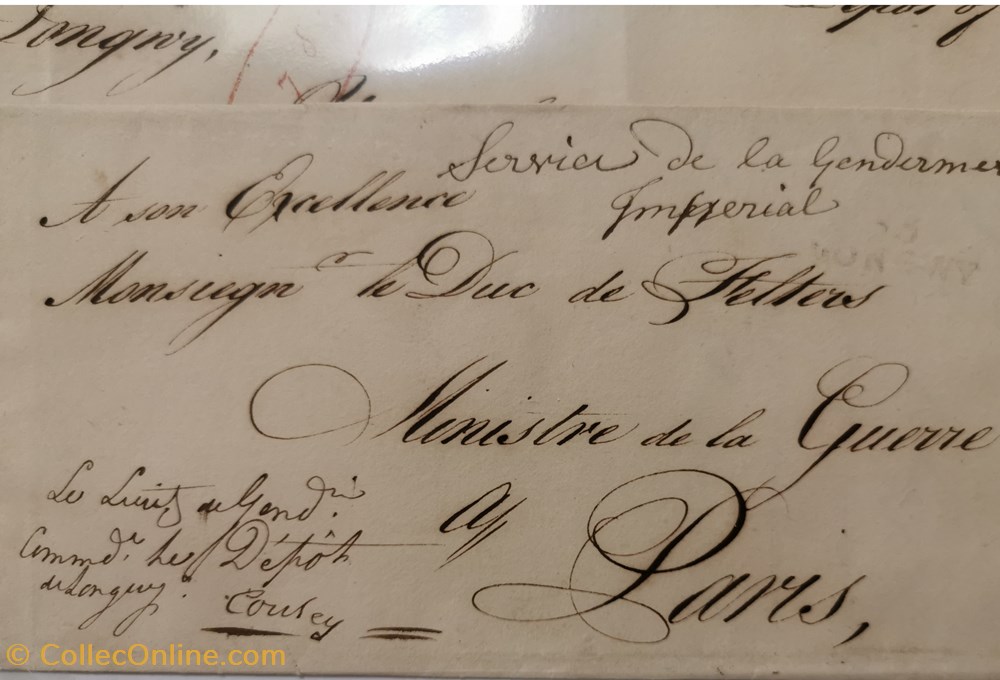 Longwy,
Service de la Gendermer
Imperial
A son Excellence
Monsiegnr le Duc de Felters
Ministre de la Guerre
a
Paris,
Le Lieut de Gendrie
Commdt le Dépôt
de Longwy.
Cousey
© CollecOnline.com